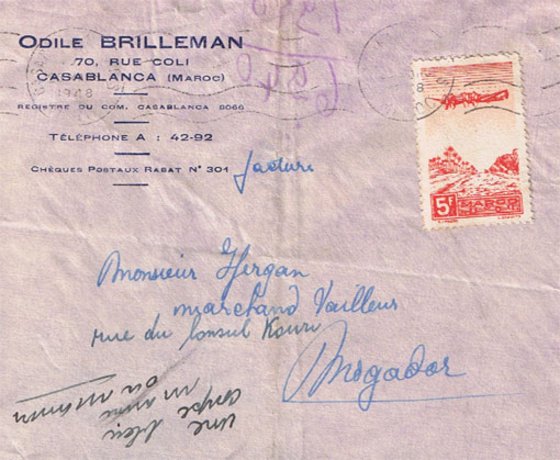 ODILE BRILLEMAN
70, RUE COLI
CASABLANCA (MAROC)
1948
REGISTRE DU COM. CASABLANCA 8066
TÉLÉPHONE A : 42-92
CHÈQUES POSTAUX RABAT N° 301
facture
5F MAROC
Monsieur Hergan
marchand Tailleur
rue du Consul Kouri
Mogador
une